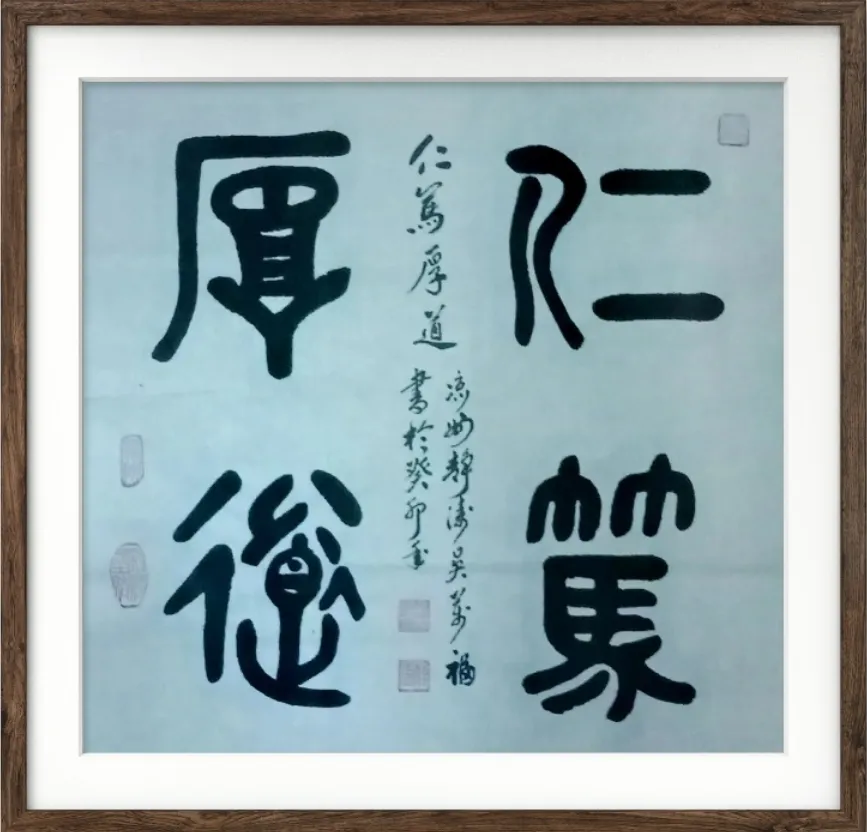 仁篤
厚道
仁篤厚道
涼州靜濤吳萬福
書於癸卯